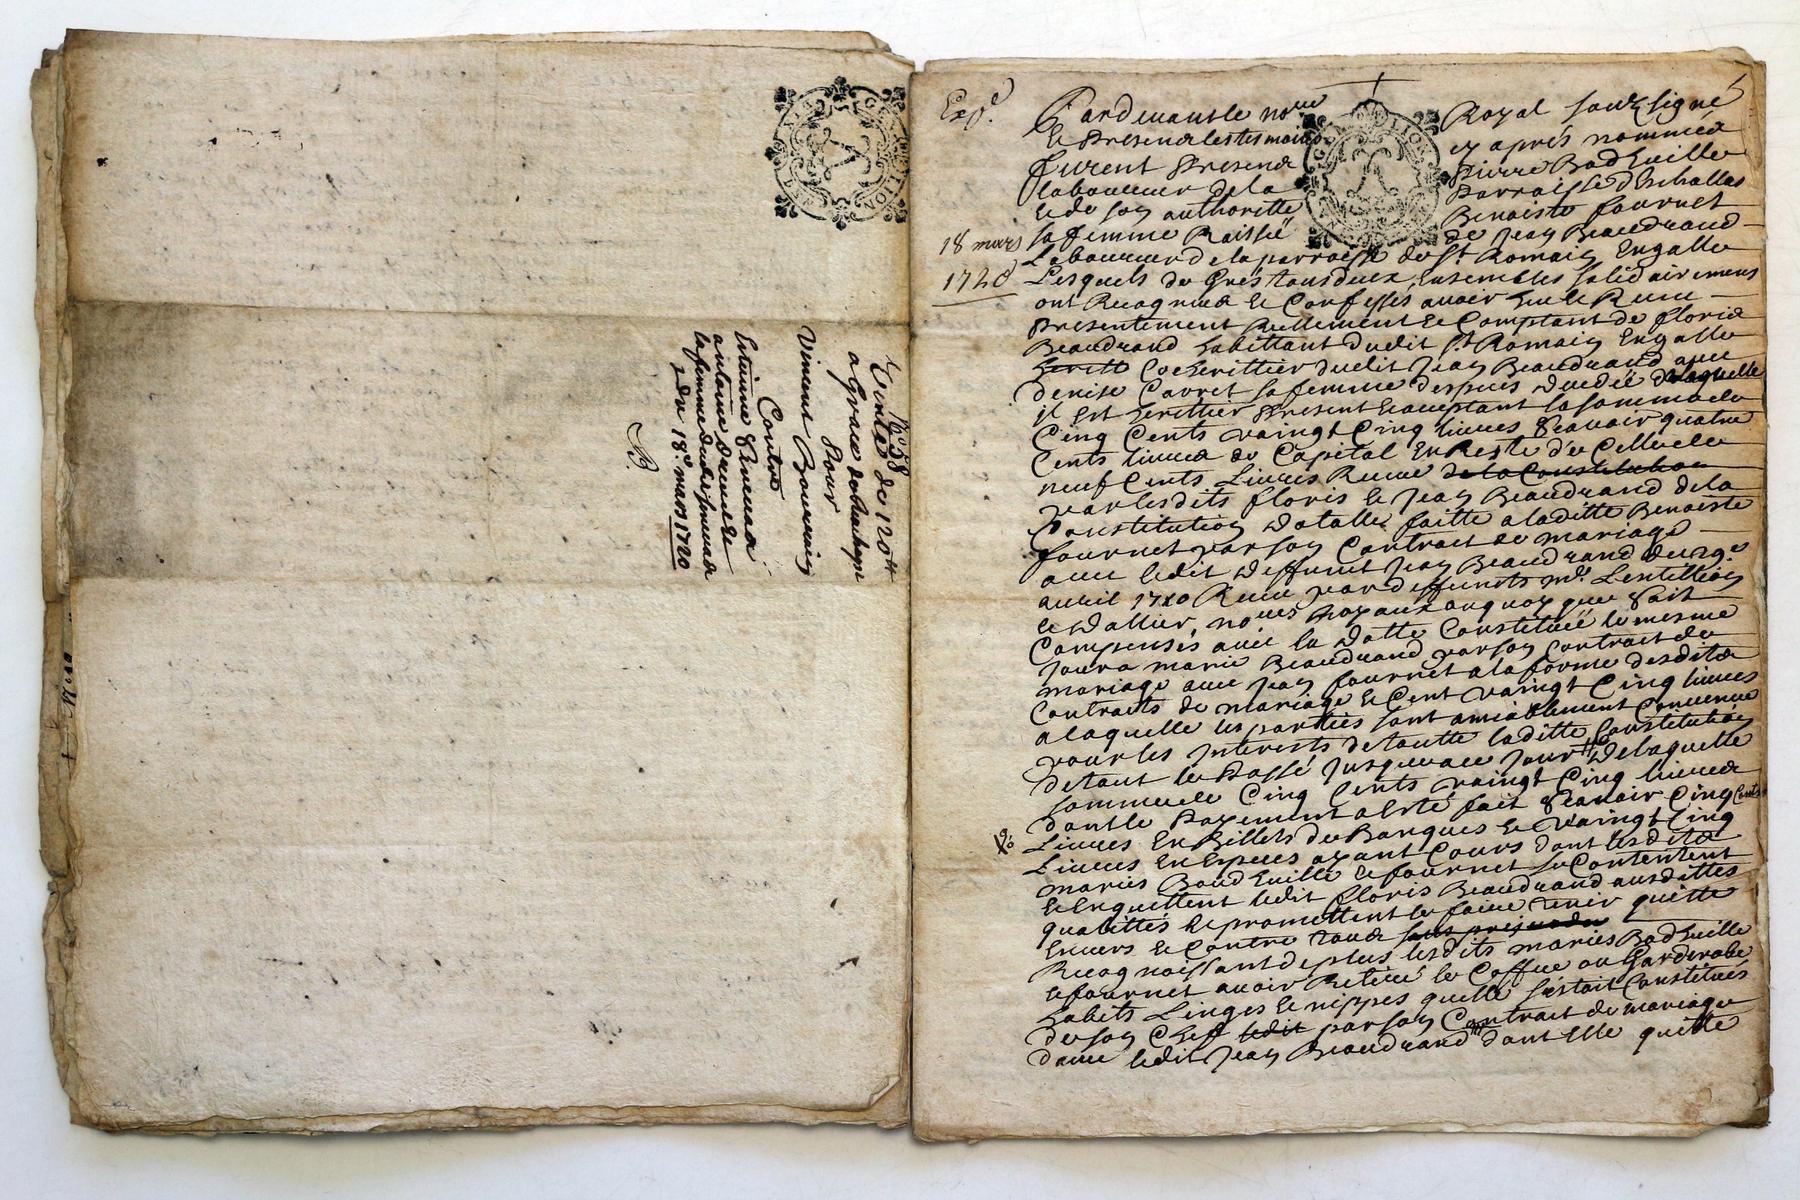 N° 58
Vente de 120ᴸᴸ
a Grace de
pour
Vincent
Contre
Estienne
antoine
la femme dudit
du 18e. mars 1720
Exp.é
18 mars
1720
Pardevant le no.re Royal souzsigné
et presens les tesmoins cy aprés nommés
furent presens Pierre Badhuille
laboureur de la parroisse d'Eschallas
et de son authoritté Benoiste fournet
sa femme de Jean Beaudrand
Laboureur de la parroisse de St. Romain Engallo
Lesquels de Gres tous deux, Ensembles solidairement
ont Recognus et Confessés avoir Eu et Receu
presentement Reellement et Comptant de floris
Beaudrand habittant dudit St. Romain Engallo
Coherittier dudit Jean Beaudrand avec
denise Carret sa femme despuis de laquelle
il Est herittier present et acceptant la somme de
Cinq Cents vaingt Cinq livres Sçavoir quatre
Cents livres de Capital En Reste de Celle de
neuf Cents Livres Receue de la Constitution
par lesdits floris et Jean Beaudrand de la
Constitution datalle faitte a laditte Benoiste
fournet par son Contrat de mariage
avec ledit deffunct Jean Beaudrand du 29e.
avril 1710 Receu par deffuncts me. Lentillion
et Dallier, no.res Royaux au quoy que soit
Compensés avec la Dotte Constituée le mesme
Jour a marie Beaudrand par son Contrait de
mariage avec Jean fournet a la forme desdits
Contraits de mariage et Cent vaingt Cinq livres
a laquelle les parties sont amiablement Convenues
pour les Interests de toutte laditte Constitution
de tout le Passé Jusques a ce Jour # De laquelle
somme de Cinq Cents vaingt Cinq livres
dont le payement a Esté fait Sçavoir Cinq Cents
Livres En Billets de Banques et Vaingt Cinq
Livres En Especes ayant Cours dont lesdits
mariés Badhuille et fournet se Contentent
et Enquittent ledit floris Beaudrand ausdittes
qualittés et promettent le faire tenir quitte
Envers et Contre tous sans prejudice
Recognoissant de plus lesdits mariés Badhuille
et fournet avoir Retiré le Coffre ou Garderobe
habits Linges et nippes quelle s'estait Constitués
de son Chef ledit par son Contrait de mariage
d'avec ledit Jean Beaudrand dont Elle quitte